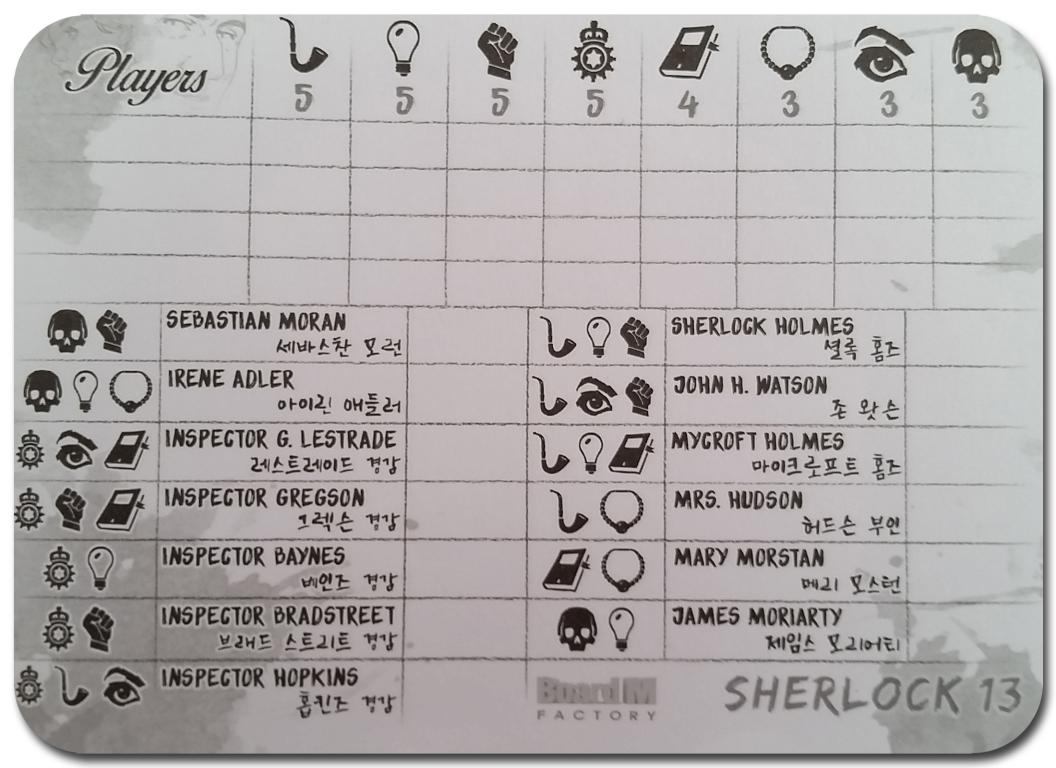 Players
5 5 5 5 4 3 3 3
SEBASTIAN MORAN
세바스찬 모런
IRENE ADLER
아이린 애들러
INSPECTOR G. LESTRADE
레스트레이드 경감
INSPECTOR GREGSON
그렉슨 경감
INSPECTOR BAYNES
베인즈 경감
INSPECTOR BRADSTREET
브래드 스트리트 경감
INSPECTOR HOPKINS
홉킨즈 경감
SHERLOCK HOLMES
셜록 홈즈
JOHN H. WATSON
존 왓슨
MYCROFT HOLMES
마이크로프트 홈즈
MRS. HUDSON
허드슨 부인
MARY MORSTAN
메리 모스턴
JAMES MORIARTY
제임스 모리어티
Board M
FACTORY
SHERLOCK 13